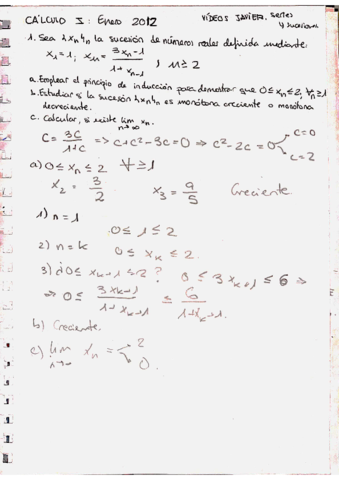 CÁLCULO I: Enero 2012
VÍDEOS JAVIERA. series y sucesiones
1. Sea {xn}n la sucesión de números reales definida mediante:
x1 = 1; xn = 3xn-1 / 1+xn-1 ; n ≥ 2
a. Emplear el principio de inducción para demostrar que 0 ≤ xn ≤ 2, ∀n ≥ 1
b. Estudiar si la sucesión {xn}n es monótona creciente o monótona
decreciente.
c. Calcular, si existe lim n→∞ xn.
C = 3C / 1+C => C+C²-3C=0 => C²-2C=0 C=0 C=2
a) 0 ≤ xn ≤ 2 ∀ ≥ 1
x2 = 3/2 x3 = 9/5 Creciente
1) n = 1
0 ≤ 1 ≤ 2
2) n = k 0 ≤ xk ≤ 2
3) ¿0 ≤ xk+1 ≤ 2? 0 ≤ 3xk+1 ≤ 6 =>
=> 0 ≤ 3xk+1 / 1+xk+1 ≤ 6 / 1+xk+1
b) Creciente.
c) lim n→∞ xn = 2 0